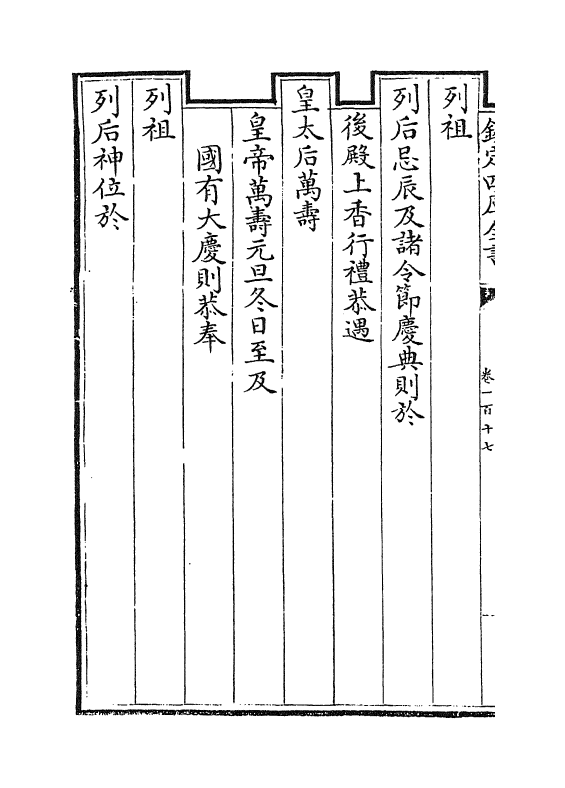 欽定四庫全書
卷一百十七
列祖
列后忌辰及諸令節慶典則於
後殿上香行禮恭遇
皇太后萬壽
皇帝萬壽元旦冬日至及
國有大慶則恭奉
列祖
列后神位於